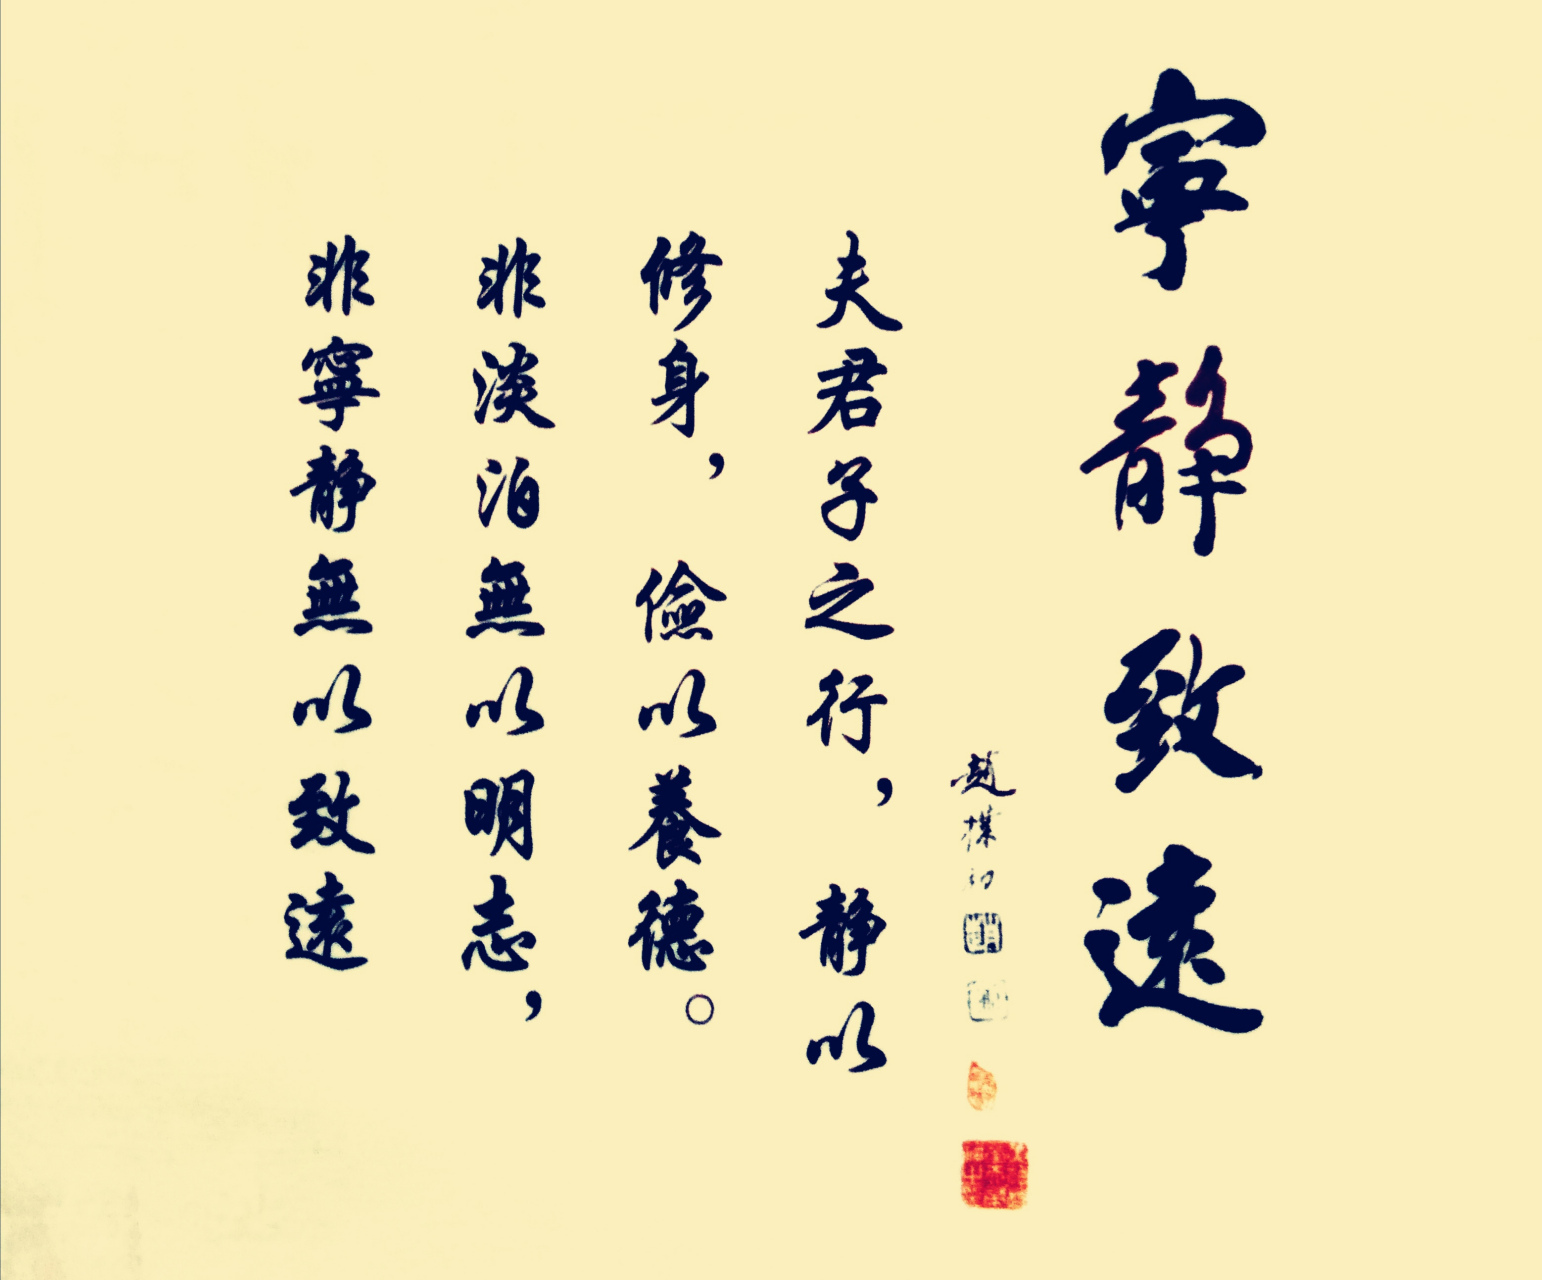 寧靜致遠
趙樸初
夫君子之行，靜以
修身，儉以養德。
非淡泊無以明志，
非寧靜無以致遠